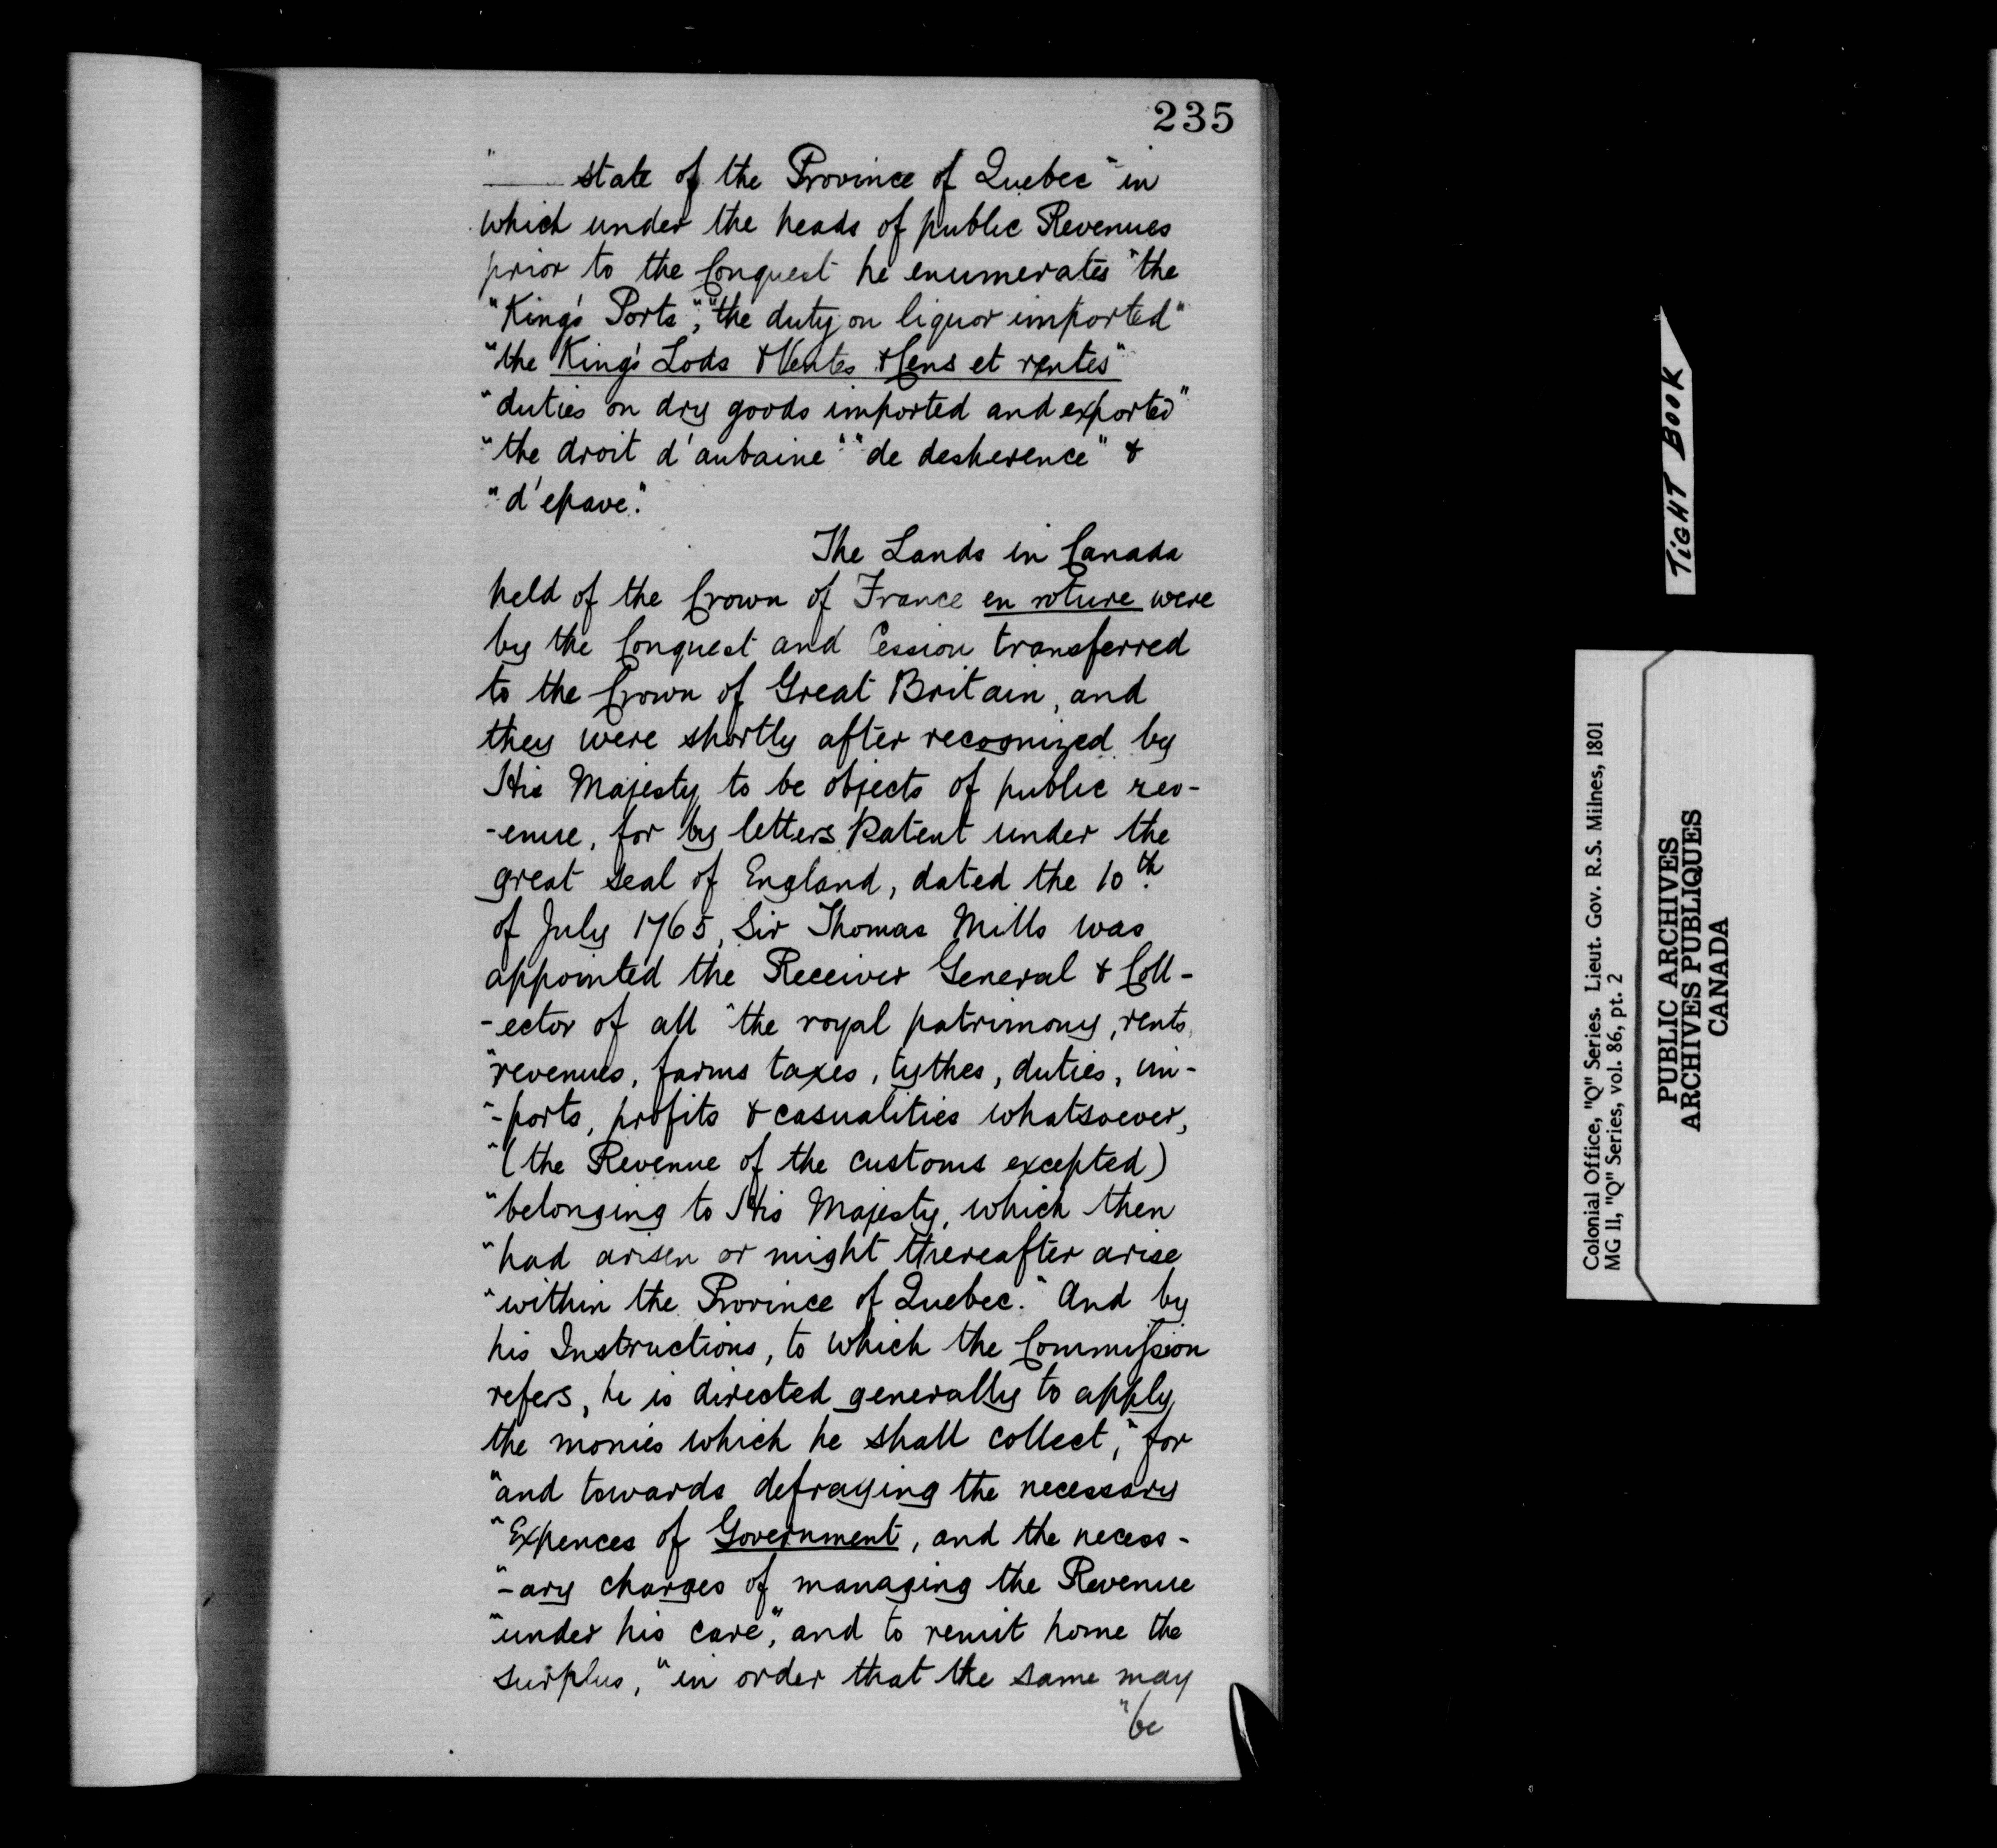 235
" ——— state of the Province of Quebec" in
which under the heads of public Revenues
prior to the Conquest he enumerates "the
"King's Ports", "the duty on liquor imported"
"the King's Lods & Ventes & Cens et rentes"
"duties on dry goods imported and exported"
"the droit d'aubaine" "de desherence" &
"d'epave."
The Lands in Canada
held of the Crown of France en roture were
by the Conquest and Cession transferred
to the Crown of Great Britain, and
they were shortly after recognized by
His Majesty to be objects of public rev-
-enue, for by letters Patent under the
great seal of England, dated the 10th
of July 1765, Sir Thomas Mills was
appointed the Receiver General & Coll-
-ector of all "the royal patrimony, rents,
"revenues, farms taxes, tythes, duties, im-
"-ports, profits & casualities whatsoever,
"(the Revenue of the customs excepted)
"belonging to His Majesty, which then
"had arisen or might thereafter arise
"within the Province of Quebec." And by
his Instructions, to which the Commission
refers, he is directed generally to apply
the monies which he shall collect, "for
"and towards defraying the necessary
"Expences of Government, and the necess-
"-ary charges of managing the Revenue
"under his care", and to remit home the
surplus, "in order that the same may
"be
TIGHT BOOK
Colonial Office, "Q" Series. Lieut. Gov. R.S. Milnes, 1801
MG 11, "Q" Series, vol. 86, pt. 2
PUBLIC ARCHIVES
ARCHIVES PUBLIQUES
CANADA